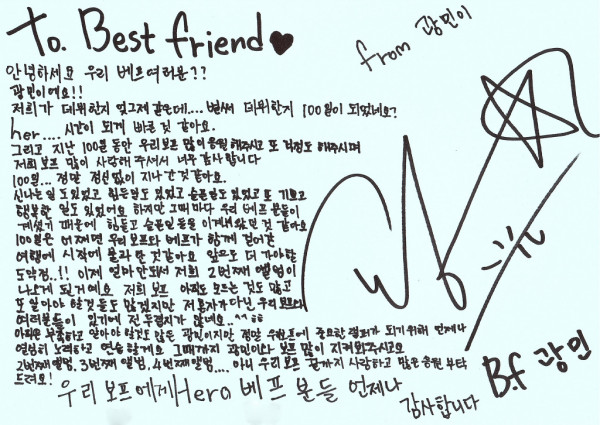 To. Best friend♥
from 광민이
안녕하세요 우리 베프여러분??
광민이에요!!
저희가 데뷔한지 엊그제 같은데.... 벌써 데뷔한지 100일이 되었네요?
her.... 시간이 되게 빠른 것 같아요.
그리고 지난 100일 동안 우리 보프 많이 응원 해주시고 또 걱정도 해주시며
저희 보프 많이 사랑해 주셔서 너무 감사합니다
100일... 정말 정신없이 지나간 것 같아요.
신나는 일도 있었고 힘든일도 있었고 슬픈일도 있었고 또 기쁘고
행복한 일도 있었어요 하지만 그때마다 우리 베프 분들이
계셨기 때문에 힘들고 슬픈일들을 이겨내왔던 것 같아요
100일은 어쩌면 우리 보프와 베프가 함께 걸어간
여행에 시작에 불과한 것같아요 앞으로 더 가야할
도약점..!! 이제 얼마안돼서 저희 2번째 앨범이
나오게 된거예요 저희 보프 아직도 모르는 것도 많고
또 알아야 할것들도 많겠지만 저 혼자가 아닌 우리 보프와
여러분들이 있기에 전 두렵지가 않네요..^^ ㅎㅎ
아직은 부족하고 알아야 할것도 많은 광민이지만 정말 우보프에 중요한 멤버가 되기위해 언제나
열심히 노력하고 연습할게요 그때까지 광민이와 보프 많이 지켜봐주시고요
2번째앨범, 3번째 앨범, 4번째앨범.... 아니 우리보프 끝까지 사랑하고 많은 응원 부탁
드려요!
우리 보프에게 Hero 베프 분들 언제나
감사합니다
B.f 광민